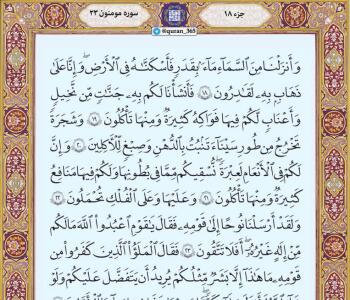 جزء ۱۸
@quran_365
سوره مومنون ۲۳
وَأَنزَلْنَا مِنَ ٱلسَّمَآءِ مَآءًۢ بِقَدَرٍ فَأَسْكَنَّٰهُ فِى ٱلْأَرْضِ ۖ وَإِنَّا عَلَىٰ
ذَهَابٍۭ بِهِۦ لَقَٰدِرُونَ ١٨ فَأَنشَأْنَا لَكُم بِهِۦ جَنَّٰتٍ مِّن نَّخِيلٍ
وَأَعْنَٰبٍ لَّكُمْ فِيهَا فَوَٰكِهُ كَثِيرَةٌ وَمِنْهَا تَأْكُلُونَ ١٩ وَشَجَرَةً
تَخْرُجُ مِن طُورِ سَيْنَآءَ تَنۢبُتُ بِٱلدُّهْنِ وَصِبْغٍ لِّلْءَاكِلِينَ ٢٠ وَإِنَّ
لَكُمْ فِى ٱلْأَنْعَٰمِ لَعِبْرَةً ۖ نُّسْقِيكُم مِّمَّا فِى بُطُونِهَا وَلَكُمْ فِيهَا مَنَٰفِعُ
كَثِيرَةٌ وَمِنْهَا تَأْكُلُونَ ٢١ وَعَلَيْهَا وَعَلَى ٱلْفُلْكِ تُحْمَلُونَ ٢٢
وَلَقَدْ أَرْسَلْنَا نُوحًا إِلَىٰ قَوْمِهِۦ فَقَالَ يَٰقَوْمِ ٱعْبُدُوا۟ ٱللَّهَ مَا لَكُم
مِّنْ إِلَٰهٍ غَيْرُهُۥٓ ۖ أَفَلَا تَتَّقُونَ ٢٣ فَقَالَ ٱلْمَلَؤُا۟ ٱلَّذِينَ كَفَرُوا۟ مِن
قَوْمِهِۦ مَا هَٰذَآ إِلَّا بَشَرٌ مِّثْلُكُمْ يُرِيدُ أَن يَتَفَضَّلَ عَلَيْكُمْ وَلَوْ